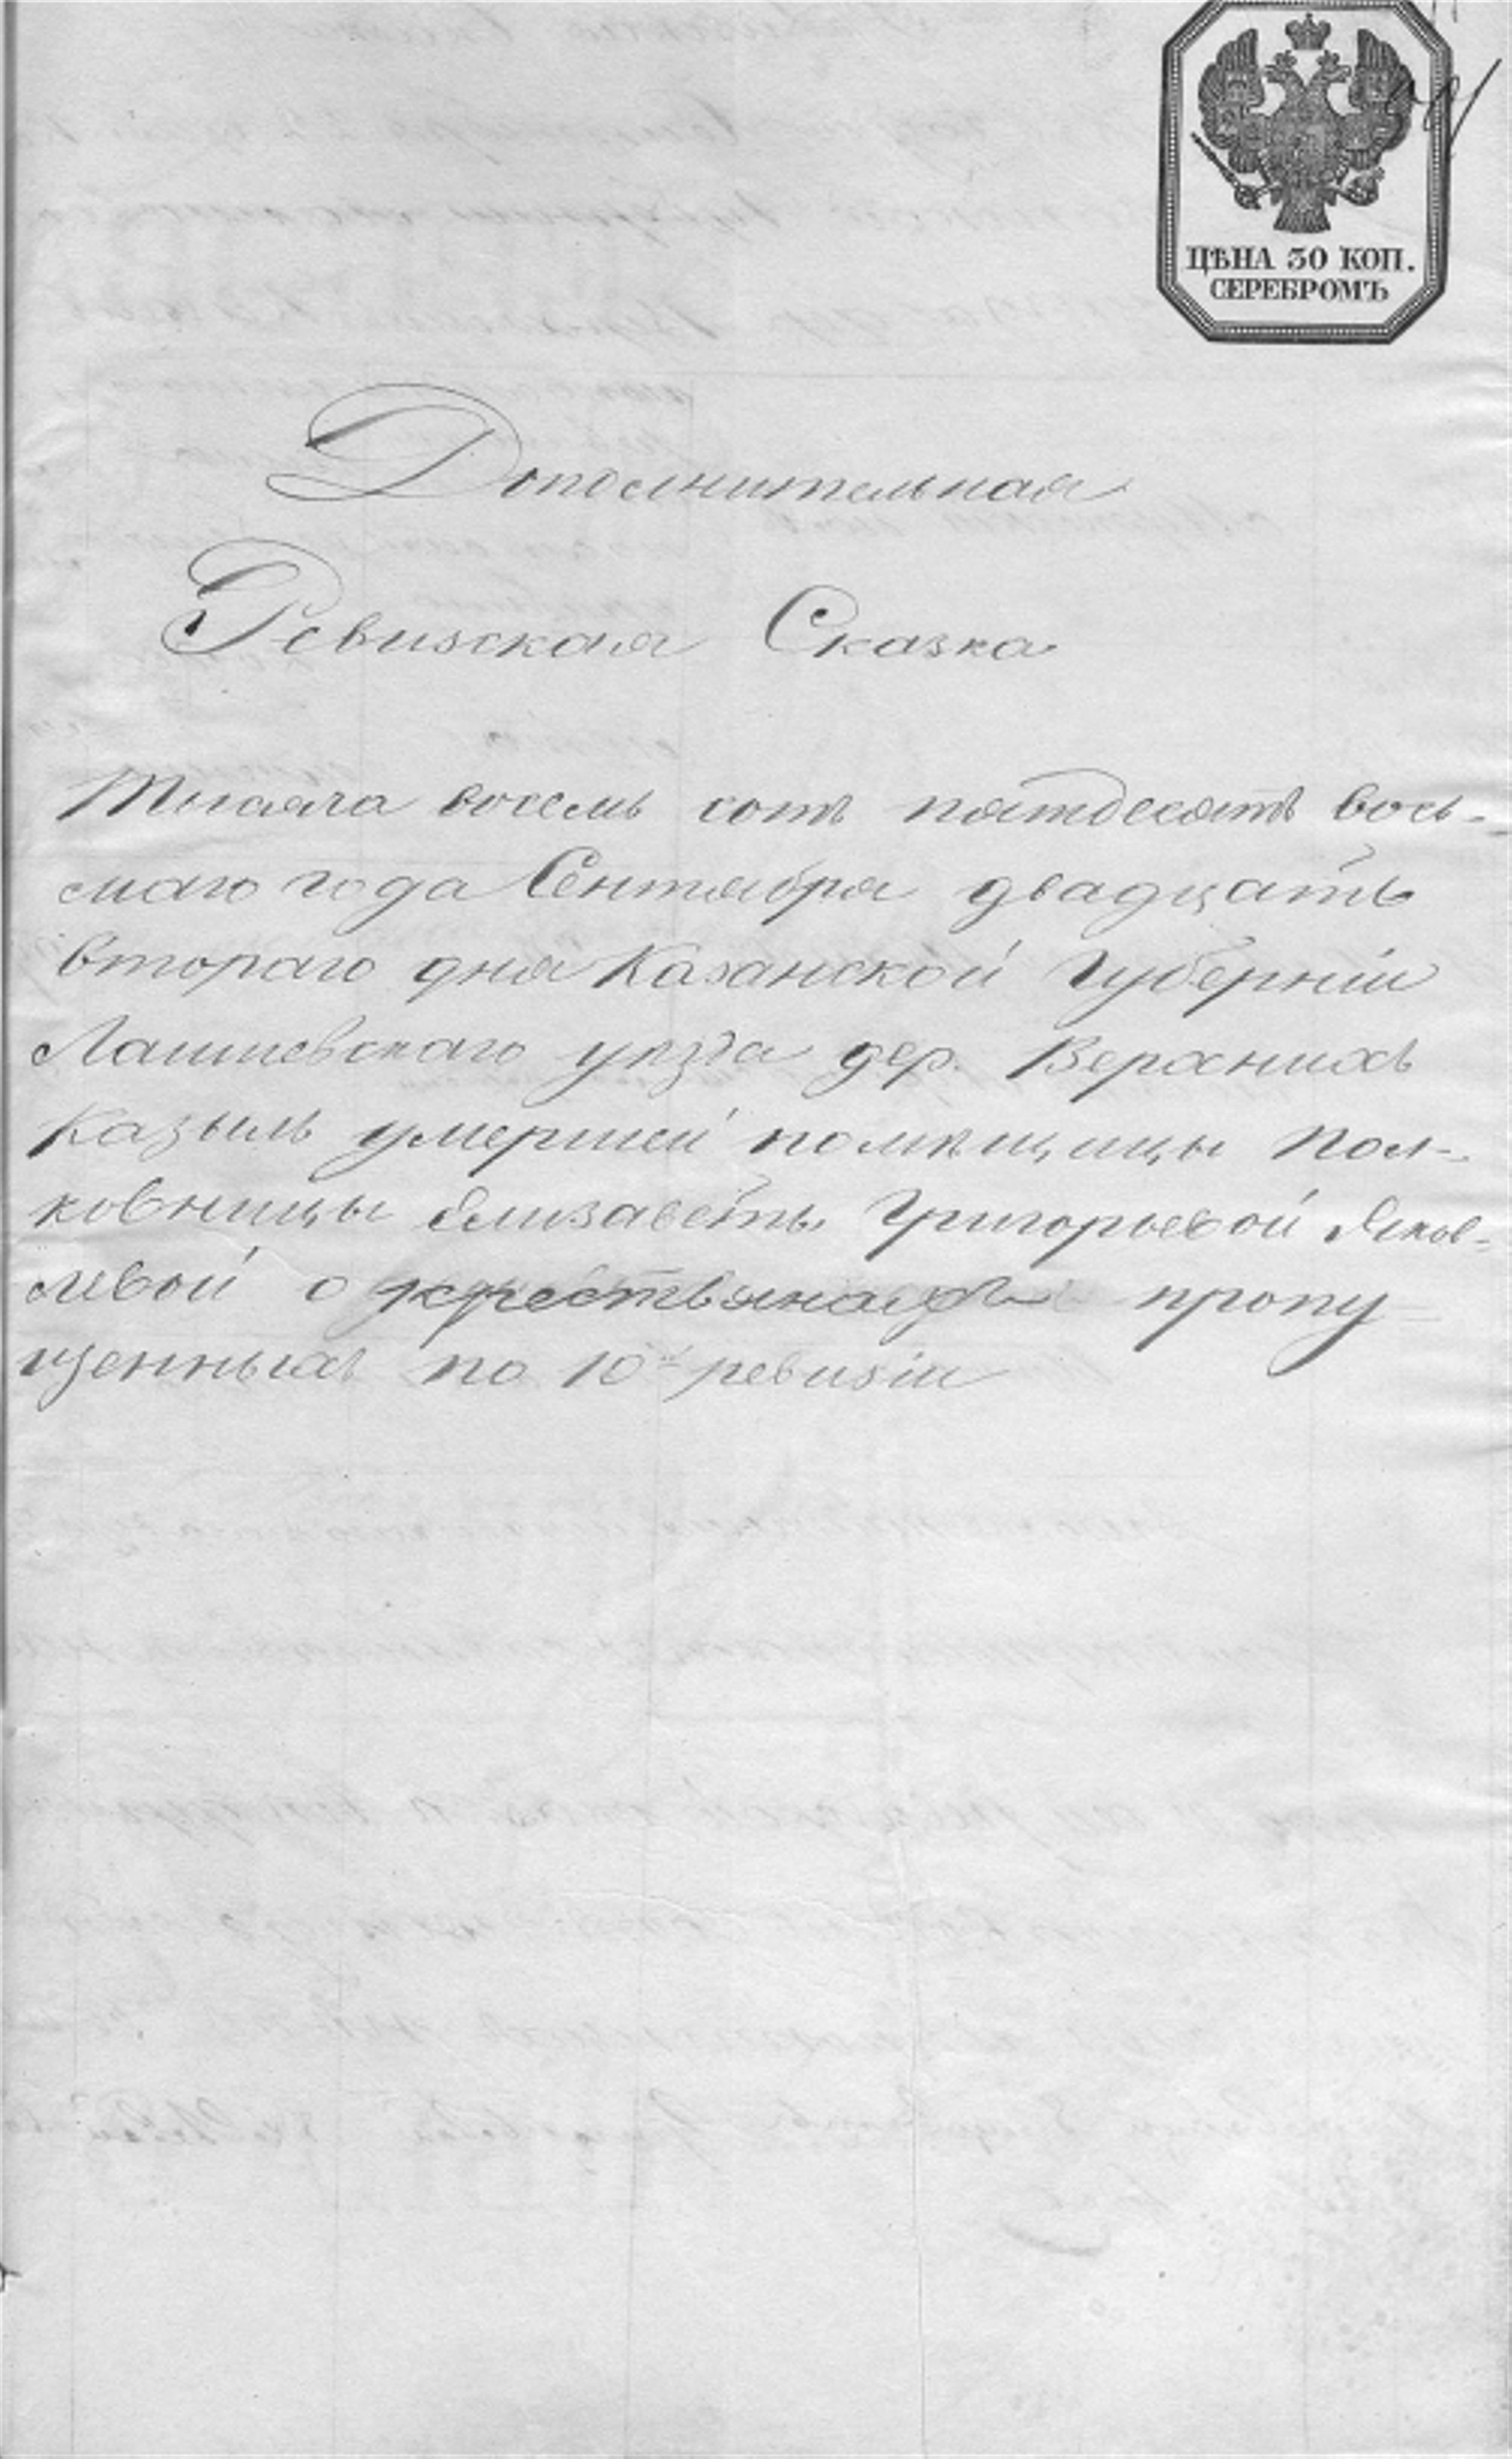 ЦѢНА 30 КОП.
СЕРЕБРОМЪ
Дополнительная
Ревизская Сказка
Тысяча восемь сотъ пятдесятъ вось-
маго года Сентября двадцать
втораго дня Казанской Губерніи
Лаишевскаго уѣзда дер. Верхнихъ
Казыль умершей помѣщицы Пол-
ковницы Елизаветы Григорьевой Яков-
левой о крестьянахъ пропу-
щенныхъ по 10й ревизіи